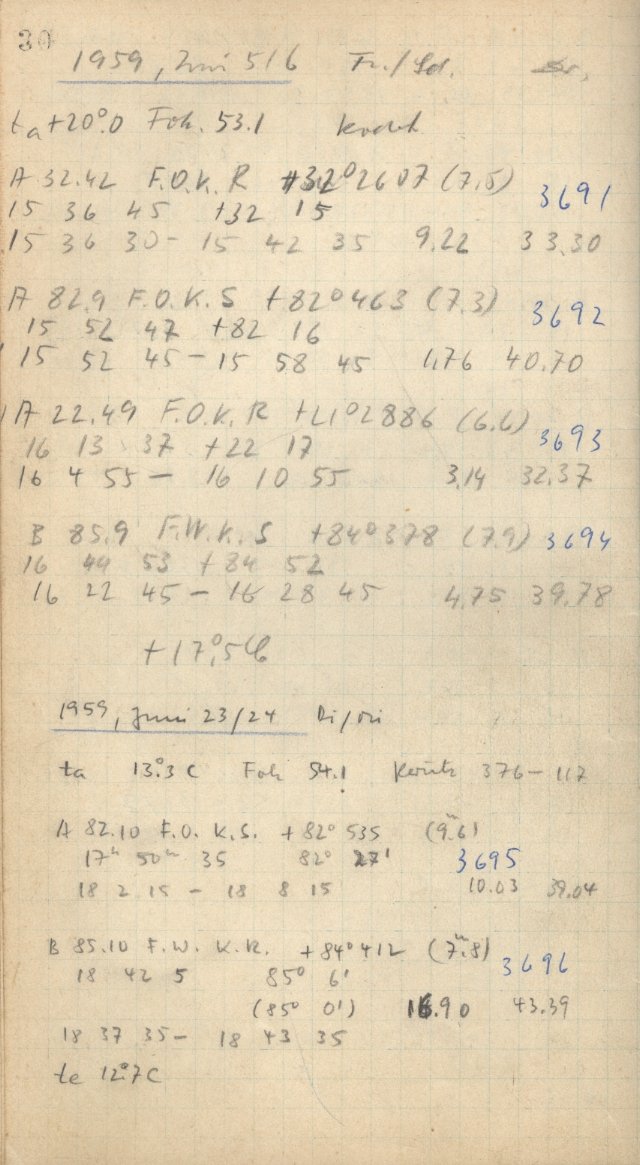 30
1959, Juni 5/6 Fr./Sd.
ta +20°.0 Fok. 53.1
A 32.42 F.O.K. R +32°2607 (7.5) 3691
15 36 45 +32 15
15 36 30 - 15 42 35 9.22 33.30
A 82.9 F.O.K.S +82°463 (7.3) 3692
15 52 47 +82 16
15 52 45 - 15 58 45 1.76 40.70
A 22.49 F.O.K. R +21°2886 (6.6) 3693
16 13 37 +22 17
16 4 55 - 16 10 55 3.14 32.37
B 85.9 F.W.K.S +84°378 (7.9) 3694
16 44 53 +84 52
16 22 45 - 16 28 45 4.75 39.78
+17°,5 C
1959, Juni 23/24 Di/Mi
ta 13°.3 C Fok 54.1 376-117
A 82.10 F.O. K.S. +82° 535 (9ᵐ.6)
17ʰ 50ᵐ 35 82° 27' 3695
18 2 15 - 18 8 15 10.03 39.04
B 85.10 F.W. K.R. +84°412 (7ᵐ.8) 3696
18 42 5 85° 6'
(85° 0') 16.90 43.39
18 37 35 - 18 43 35
te 12°.7 C